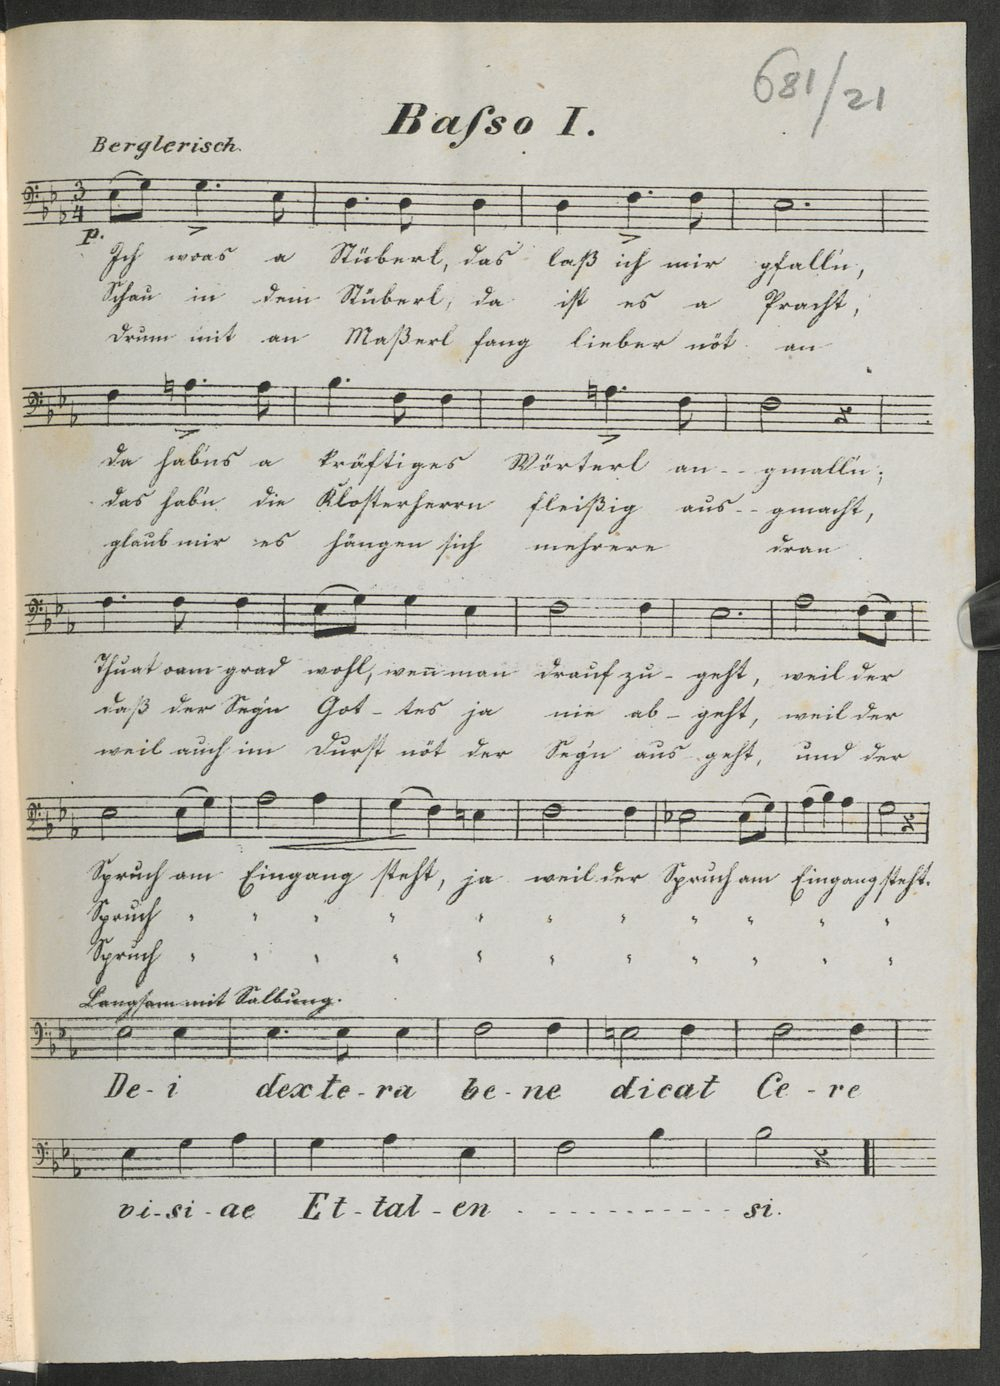 681/21
Baſso I.
Berglerisch.
p.
Ich woas a Stüberl, das laß ich mir gfall'n,
Schau in dem Stüberl, da ist es a Pracht,
drum mit an Maßerl fang lieber nöt an
da hab'ns a kräftiges Wörterl an--gmall'n;
das hab'n die Klosterherrn fleißig aus--gmacht,
glaub mir es hängen sich mehrere dran
Thuat oam grad wohl, wen̄ man drauf zu-geht, weil der
daß der Seg'n Got-tes ja nie ab-geht, weil der
weil auch im Durst nöt der Seg'n aus geht, und der
Spruch am Eingang steht, ja weil der Spruch am Eingang steht.
Spruch " " " " " " " " " " "
Spruch " " " " " " " " " " "
Langsam mit Salbung.
De-i dexte-ra be-ne dicat Ce-re
vi-si-ae Et-tal-en - - - - - - - - - - - si.